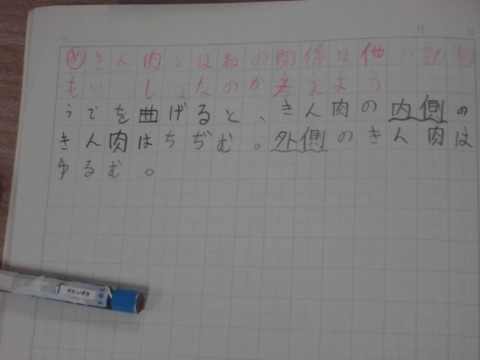 め きん肉とほねの関係は他の動物
もいっしょなのか考えよう
うでを曲げると、きん肉の内側の
きん肉はちぢむ。外側のきん肉は
ゆるむ。
月 日